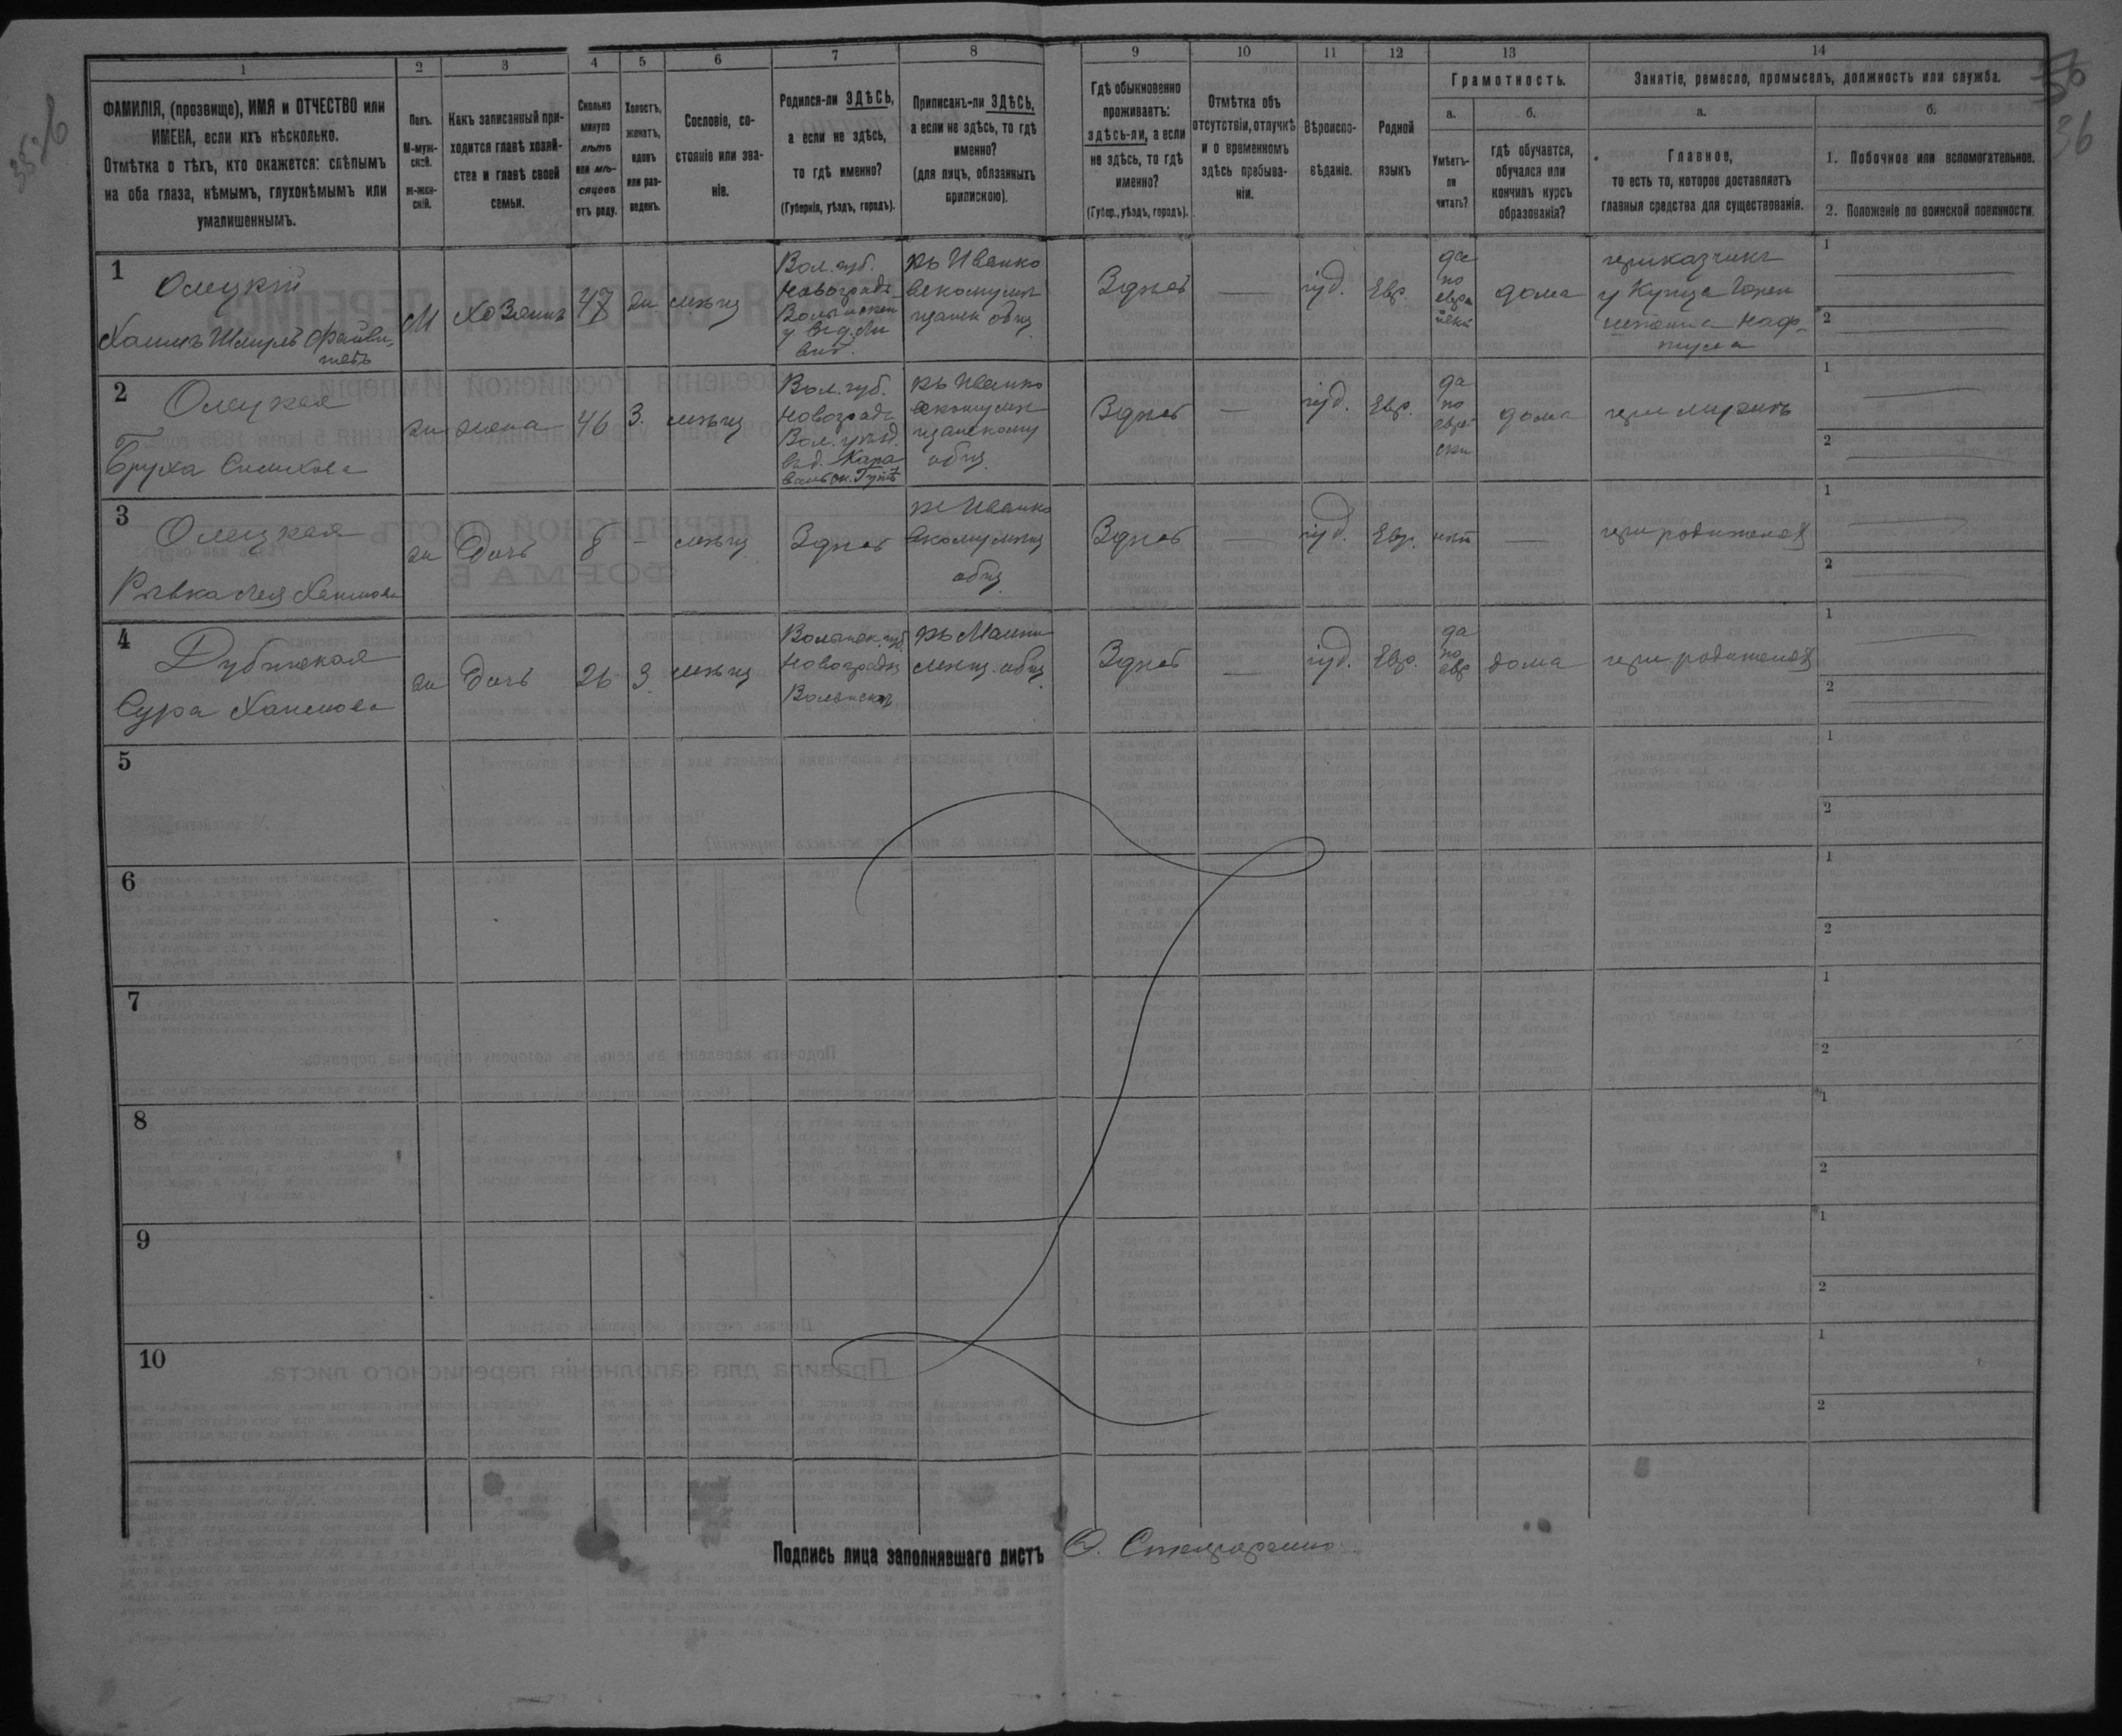 35 36
36
1
2
3
4
5
6
7
8
9
10
11
12
13
14
ФАМИЛІЯ, (прозвище), ИМЯ и ОТЧЕСТВО или
ИМЕНА, если ихъ нѣсколько.
Отмѣтка о тѣхъ, кто окажется: слѣпымъ
на оба глаза, нѣмымъ, глухонѣмымъ или
умалишеннымъ.
Полъ.
М-муж-
ской.
Ж-жен-
скій.
Какъ записанный при-
ходится главѣ хозяй-
ства и главѣ своей
семьи.
Сколько
минуло
лѣтъ
или мѣ-
сяцевъ
отъ роду.
Холостъ,
женатъ,
вдовъ
или раз-
веденъ.
Сословіе, со-
стояніе или зва-
ніе.
Родился-ли ЗДѢСЬ,
а если не здѣсь,
то гдѣ именно?
(Губернія, уѣздъ, городъ).
Приписанъ-ли ЗДѢСЬ,
а если не здѣсь, то гдѣ
именно?
(для лицъ, обязанныхъ
припискою).
Гдѣ обыкновенно
проживаетъ:
здѣсь-ли, а если
не здѣсь, то гдѣ
именно?
(Губер., уѣздъ, городъ).
Отмѣтка объ
отсутствіи, отлучкѣ
и о временномъ
здѣсь пребыва-
ніи.
Вѣроиспо-
вѣданіе.
Родной
языкъ
Грамотность.
а.
б.
Умѣетъ-
ли
читать?
гдѣ обучается,
обучался или
кончилъ курсъ
образованія?
Занятіе, ремесло, промыселъ, должность или служба.
а.
б.
Главное,
то есть то, которое доставляетъ
главныя средства для существованія.
1. Побочное или вспомогательное.
2. Положеніе по воинской повинности.
1
Олецкій
Хаимъ Шмуль Файви-
шевъ
М
Хозяинъ
47
ж.
мѣщ
Вол. губ.
Новоградъ-
Волынскаго
у
къ Иванко
вскому мѣ
щанск общ
Здѣсь
іуд.
Евр.
да
по
евре
йски
дома
приказчикъ
у купца
2
Олецкая
Бруха
ж
жена
46
З.
мѣщ
Вол. губ.
Новоградъ
Вол. уѣзд.
къ Иванко
вскому мѣ
щанскому
общ.
Здѣсь
іуд.
Евр.
да
по
евре
ски
дома
при мужѣ
3
Олецкая
Рывка Лея Хаимова
ж
дочь
8
мѣщ
Здѣсь
къ Иванко
вскому мѣщ
общ
Здѣсь
іуд.
Евр.
нѣт
при родителях
4
Дубинская
Сура Хаимова
ж
дочь
26
З.
мѣщ
Волынск. губ.
Новоградъ
Волынскъ
мѣщ. общ.
Здѣсь
іуд.
Евр.
да
по
евр
дома
при родителях
5
6
7
8
9
10
1
2
1
2
1
2
1
2
1
2
1
2
1
2
1
2
1
2
1
2
Подпись лица заполнявшаго листъ